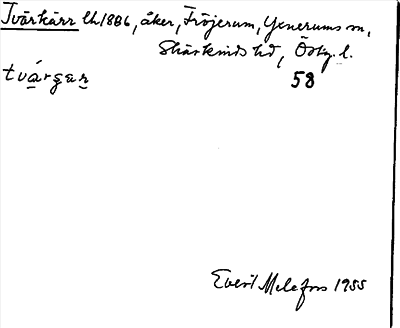 Tvärkärr lh 1886, åker, Fröjerum, Yxnerums sn,
Skärkinds hd, Östg. l.
tvárgar 58
Evert Melefors 1955